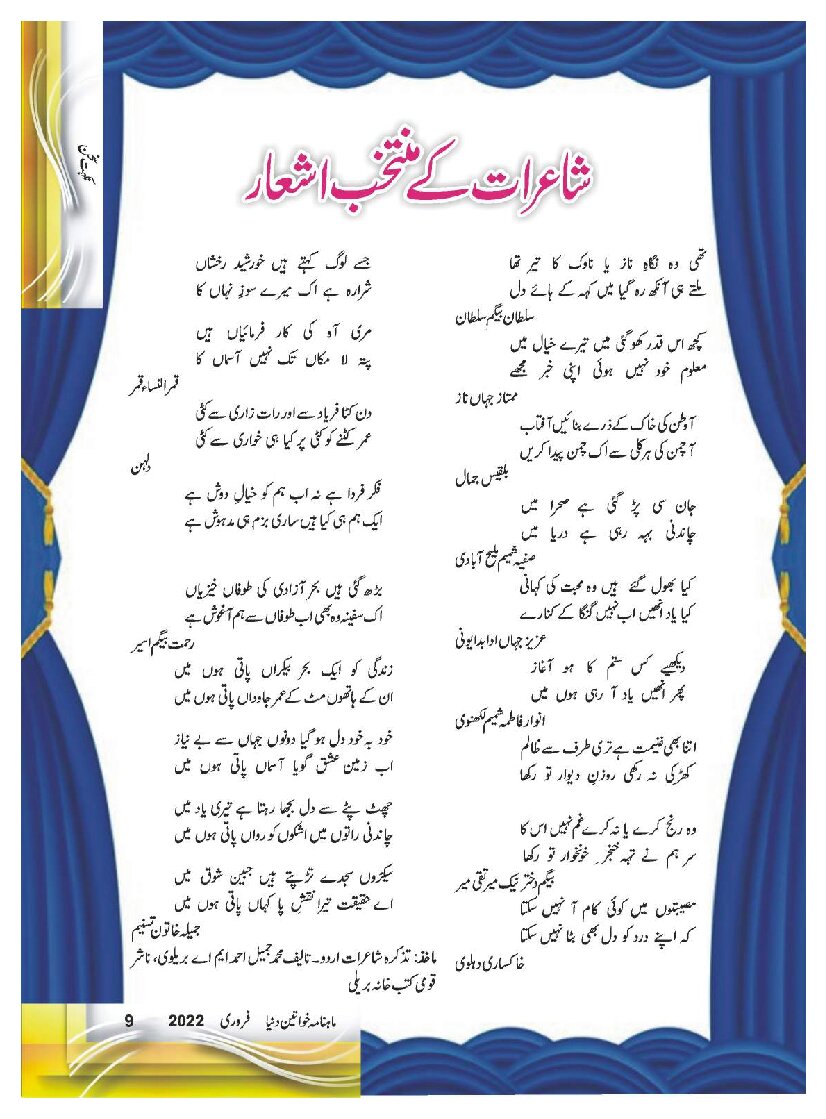 شاعرات کے منتخب اشعار
تھی وہ نگاہِ ناز یا ناوک کا تیر تھا
ملتے ہی آنکھ رہ گیا میں کہہ کے ہائے دل
سلطان بیگم سلطان
کچھ اس قدر کھو گئی میں تیرے خیال میں
معلوم خود نہیں ہوئی اپنی خبر مجھے
ممتاز جہاں ناز
آ وطن کی خاک کے ذرے بنائیں آفتاب
آ چمن کی ہر کلی سے اک چمن پیدا کریں
بلقیس جمال
جان سی پڑ گئی ہے صحرا میں
چاندنی بہہ رہی ہے دریا میں
صفیہ شمیم ملیح آبادی
کیا بھول گئے ہیں وہ محبت کی کہانی
کیا یاد انھیں اب نہیں گنگا کے کنارے
عزیز جہاں ادا بدایونی
دیکھیے کس ستم کا ہو آغاز
پھر انھیں یاد آ رہی ہوں میں
انوار فاطمہ شمیم لکھنوی
اتنا بھی غنیمت ہے تری طرف سے ظالم
کھڑکی نہ رکھی روزنِ دیوار تو رکھا
وہ رنج کرے یا نہ کرے غم نہیں اس کا
سر ہم نے تہہ خنجر خونخوار تو رکھا
بیگم دختر نیک میر تقی میر
مصیبتوں میں کوئی کام آ نہیں سکتا
کہ اپنے درد کو دل بھی بٹا نہیں سکتا
خاکساری دہلوی
جسے لوگ کہتے ہیں خورشید رخشاں
شرارہ ہے اک میرے سوزِ نہاں کا
مری آہ کی کار فرمائیاں ہیں
پتہ لا مکاں تک نہیں آسماں کا
قمر النساء قمر
دن کٹا فریاد سے اور رات زاری سے کٹی
عمر کٹنے کو کٹی پر کیا ہی خواری سے کٹی
دلہن
فکر فردا ہے نہ اب ہم کو خیالِ دوش ہے
ایک ہم ہی کیا ہیں ساری بزم ہی مدہوش ہے
بڑھ گئی ہیں بحر آزادی کی طوفاں خیزیاں
اک سفینہ وہ بھی اب طوفاں سے ہم آغوش ہے
رحمت بیگم اسیر
زندگی کو ایک بحر بیکراں پاتی ہوں میں
ان کے ہاتھوں مٹ کے عمر جاوداں پاتی ہوں میں
خود بہ خود دل ہو گیا دونوں جہاں سے بے نیاز
اب زمین عشق گویا آسماں پاتی ہوں میں
جھٹ پٹے سے دل بجھا رہتا ہے تیری یاد میں
چاندنی راتوں میں اشکوں کو رواں پاتی ہوں میں
سیکڑوں سجدے تڑپتے ہیں جبین شوق میں
اے حقیقت تیرا نقشِ پا کہاں پاتی ہوں میں
جمیلہ خاتون تسنیم
ماخذ: تذکرہ شاعرات اردو۔ تالیف محمد جمیل احمد ایم اے بریلوی، ناشر
قومی کتب خانہ بریلی
ماہنامہ خواتین دنیا فروری 2022 9